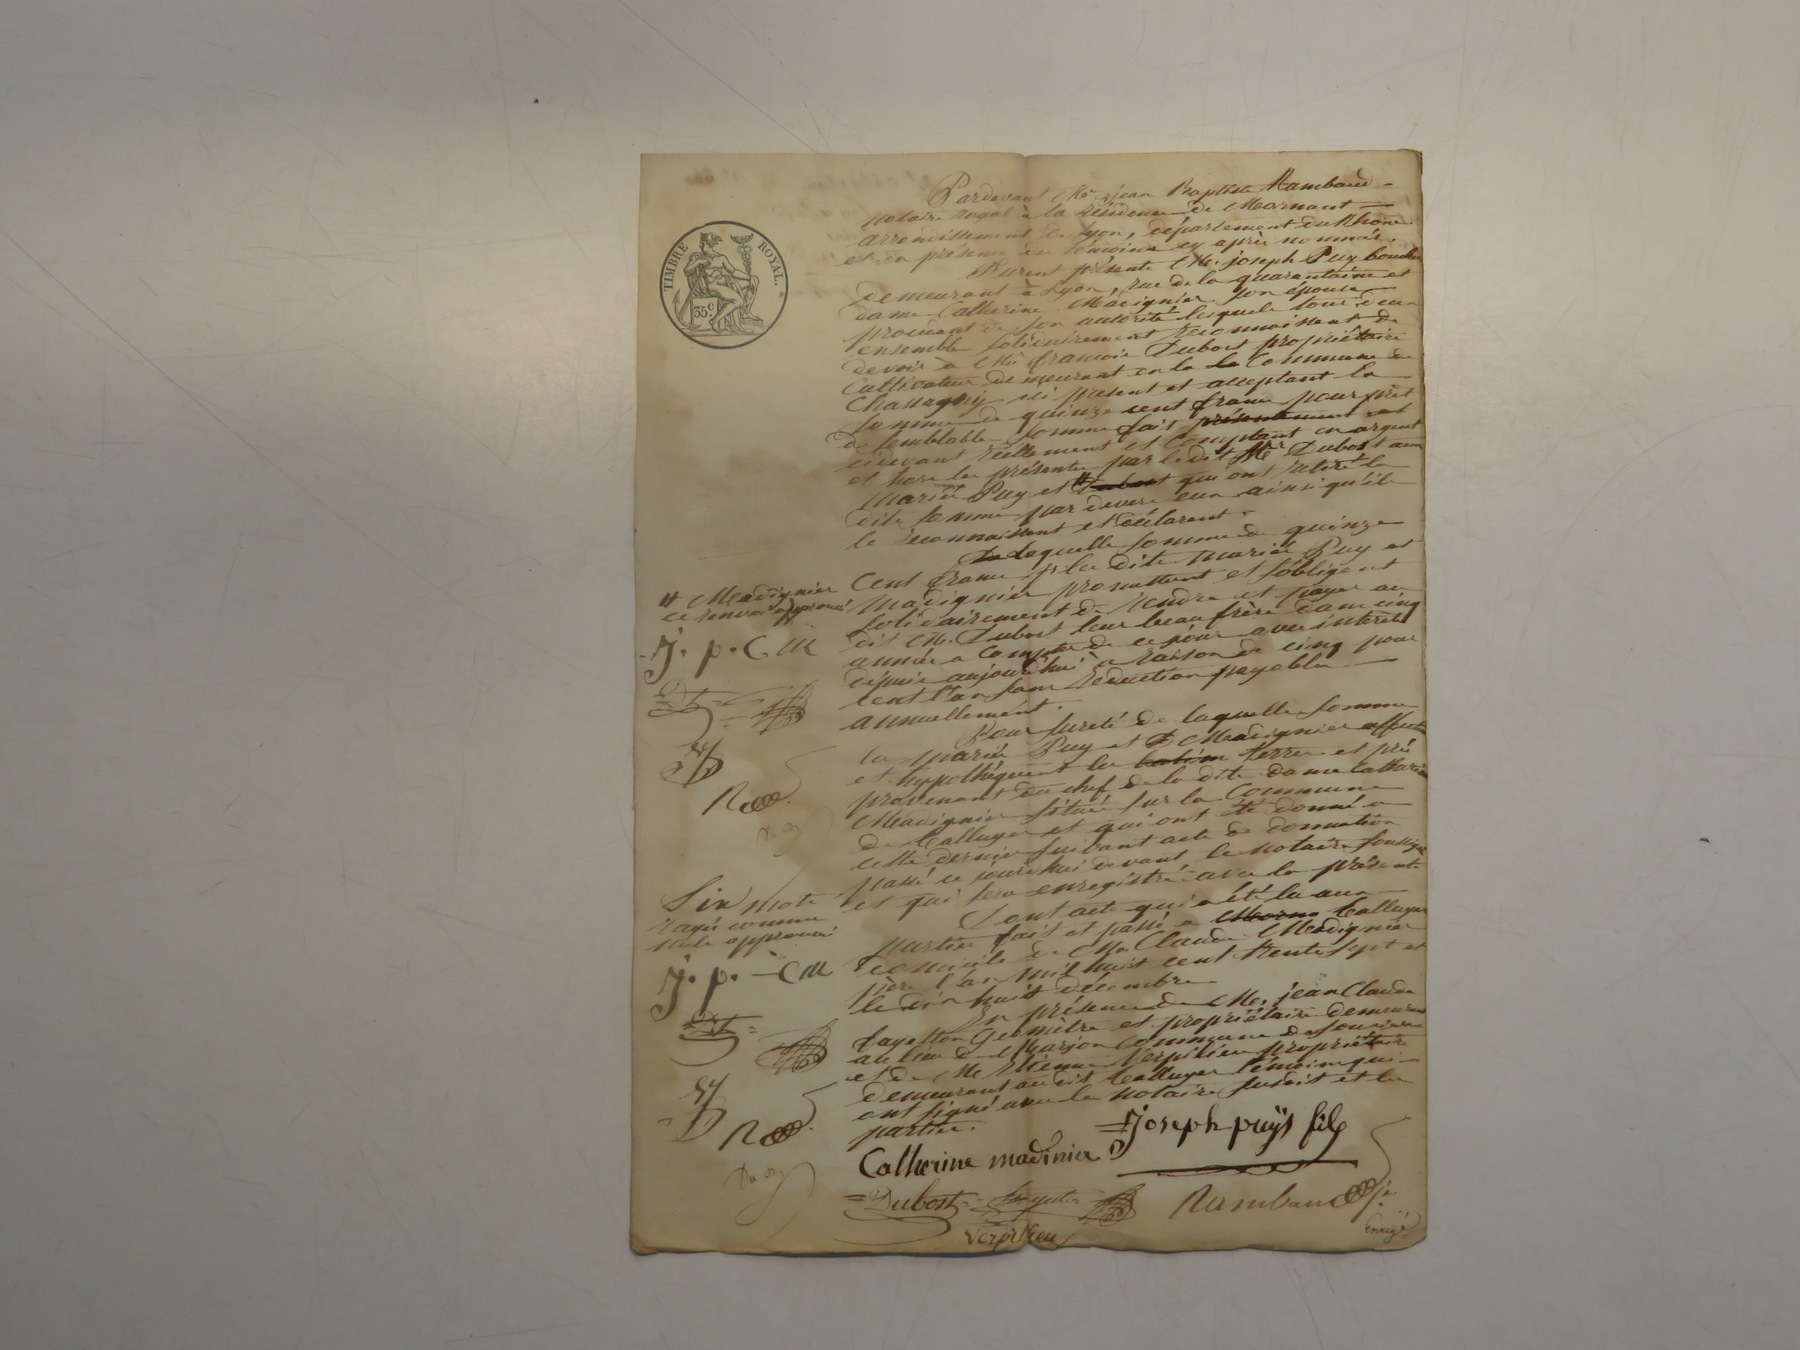 TIMBRE ROYAL.
35c.
Pardevant Me jean Baptiste Rambaud
notaire royal à la résidence de Mornant
arrondissement de Lyon, département du Rhône
et en présence des témoins cy après nommés,
Furent présents Mr. joseph Puy boucher
demeurant à Lyon, rue de la quarantaine et
dame Catherine Madignier son épouse
procédant de son autorité lesquels tous deux
ensemble solidairement reconnoissent de
devoir à Mr françois Dubost propriétaire
Cultivateur demeurant en la Commune de
Chassagny ici présent et acceptant la
somme de quinze cent francs pour prêt
de semblable somme fait présentement et
cidevant réellement et Comptant en argent
et hors les présentes par le dit Mr Dubost aux
mariés Puy et # Dubost qui ont retiré la
dite somme par devers eux ainsi qu'ils
le reconnaissent et déclarent.
De Laquelle somme de quinze
Cent francs les dits mariés Puy et
Madignier promettent et s'obligent
solidairement de rendre et payer au
dit Mr. Dubost leur beau frère dans cinq
années a Compter de ce jour avec intérêts
depuis aujourd'hui à raison de cinq pour
cent l'an sans réduction payables
annuellement.
Pour sureté de laquelle somme
les mariés Puy et Madignier affectent
et hypothèquent les terres et prés
provenant du chef de la dite dame Catherine
Madignier situés sur la Commune
de Talluyer et qui ont été donnés a
cette dernier suivant acte de donnation
passé ce jourd'hui devant le notaire soussigné
et qui sera enregistré avec la présente
Dont acte qui a été lu aux
parties fait et passé a Talluyer
domicile de Mr Claude Madignier
père l'an mil huit cent trente sept et
le dix huit décembre
En présence de Mr. jean Claude
fayetton Géomètre et propriétaire demeurant
au lieu de Marjon Commune de
et de Mr Etienne Verpilieu propriétaire
demeurant au dit Talluyer témoins qui
ont signé avec le notaire susdit et les
parties.
# Madignier
ce renvoi approuvé
J. p. C. M
Six mots
rayés comme
nuls approuvés
J. p. C M
joseph puÿs fils
Catherine madinier
Dubost
fayetton
Rambaud
Verpilieu